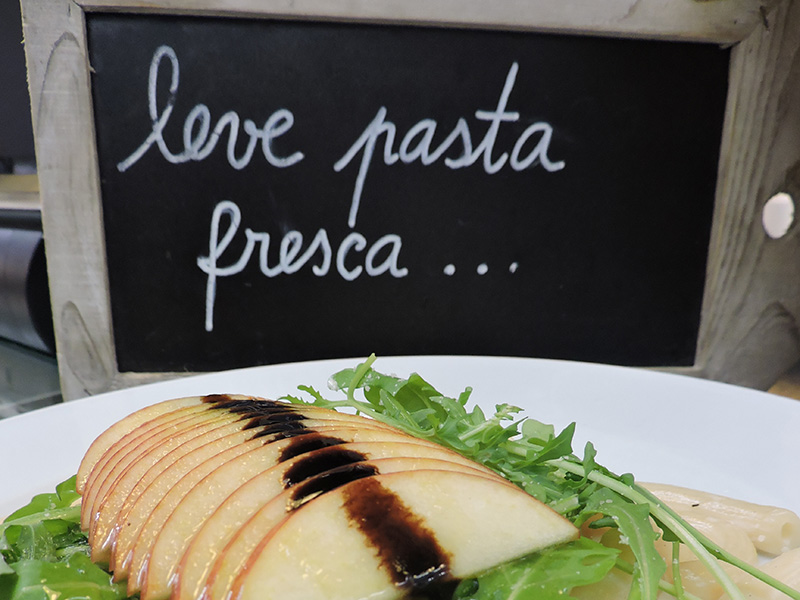 leve pasta
fresca ...